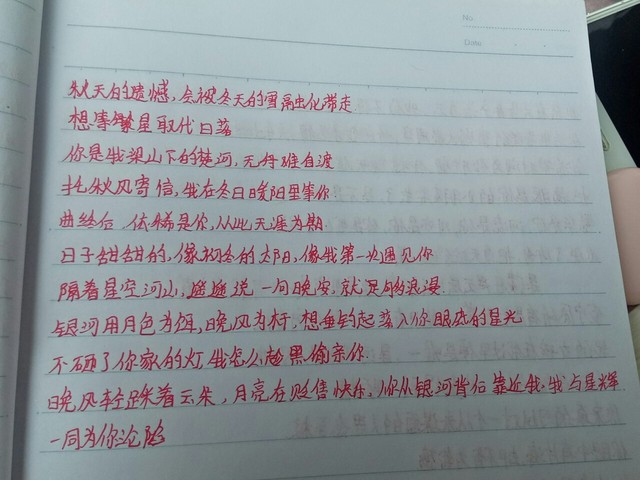 No
Date
秋天的遗憾,会被冬天的雪融化带走
想等繁星取代日落
你是我梁山下的楚河,无舟难自渡
托秋风寄信,我在冬日暖阳里等你
曲终后 依稀是你,从此天涯为期
日子甜甜的,像初冬的太阳,像我第一次遇见你
隔着星空河山,遥遥说一句晚安,就足够浪漫
银河用月色为饵,晚风为杆,想垂钓起落入你眼底的星光
不砸了你家的灯我怎么趁黑偷亲你
晚风轻踩着云朵,月亮在贩售快乐,你从银河背后靠近我,我与星辉
一同为你沦陷